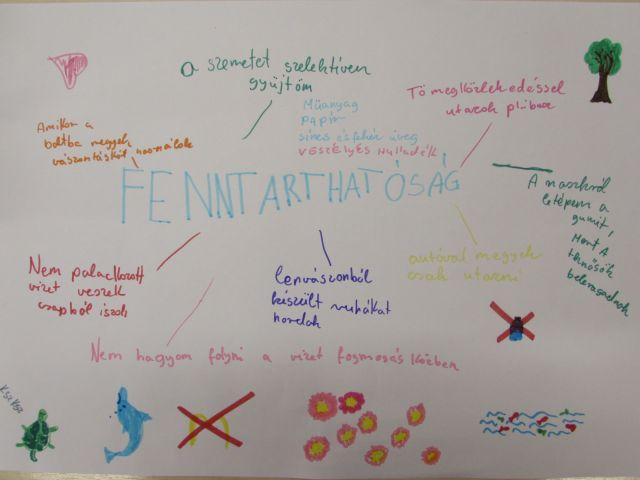 a szemetet szelektíven
gyűjtöm
Műanyag
papír
színes és fehér üveg
VESZÉLYES Hulladék
Tömegközlekedéssel
utazok plibusz
Amikor a
boltba megyek
vászontáskát használok
FENNTARTHATÓSÁG
A maszkról
letépem a
gumit,
Mert A
teknősök
beleragadnak
Nem palackozott
vizet veszek
csapból iszok
lenvászonból
készült ruhákat
hordok
autóval megyek
csak utazni
Nem hagyom folyni a vizet fogmosás közben